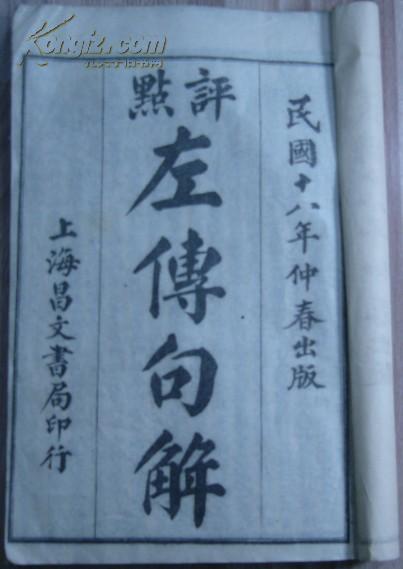 民國十八年仲春出版
評點
左傳句解
上海昌文書局印行
Kongfz.com
孔夫子旧书网